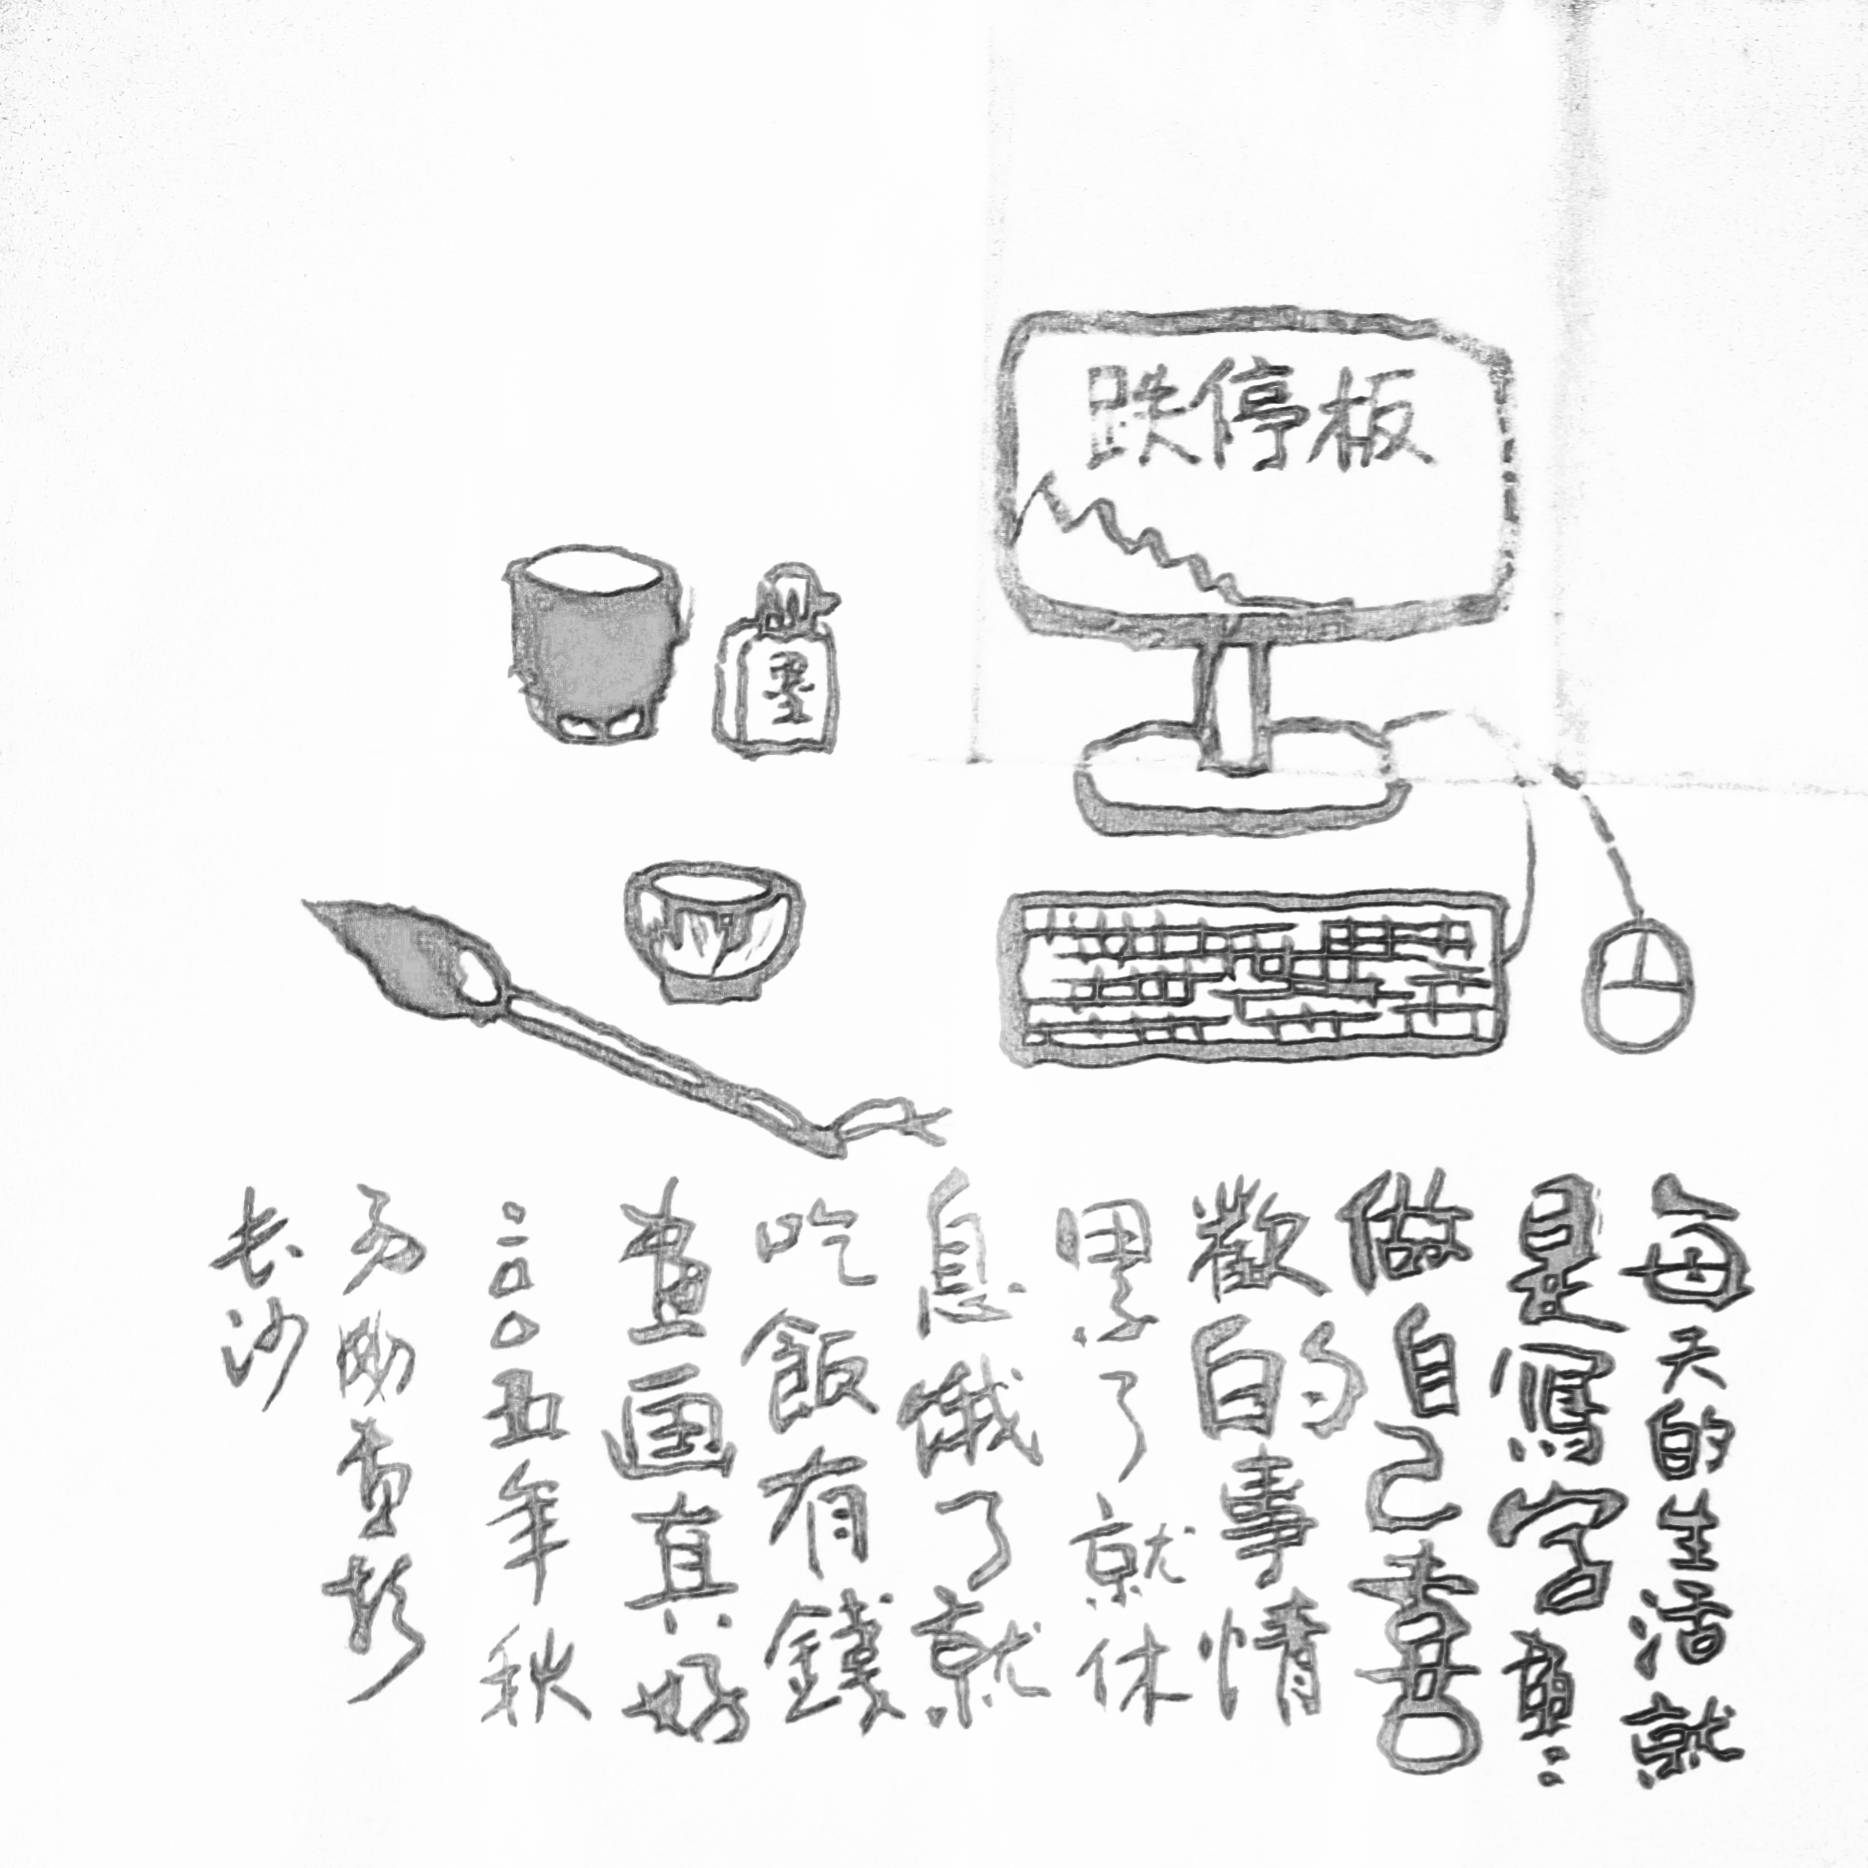 跌停板
墨
每天的生活就
是寫字畫〻
做自己喜
歡的事情
累了就休
息餓了就
吃飯有錢
畫画真好
二〇〇五年秋
长沙